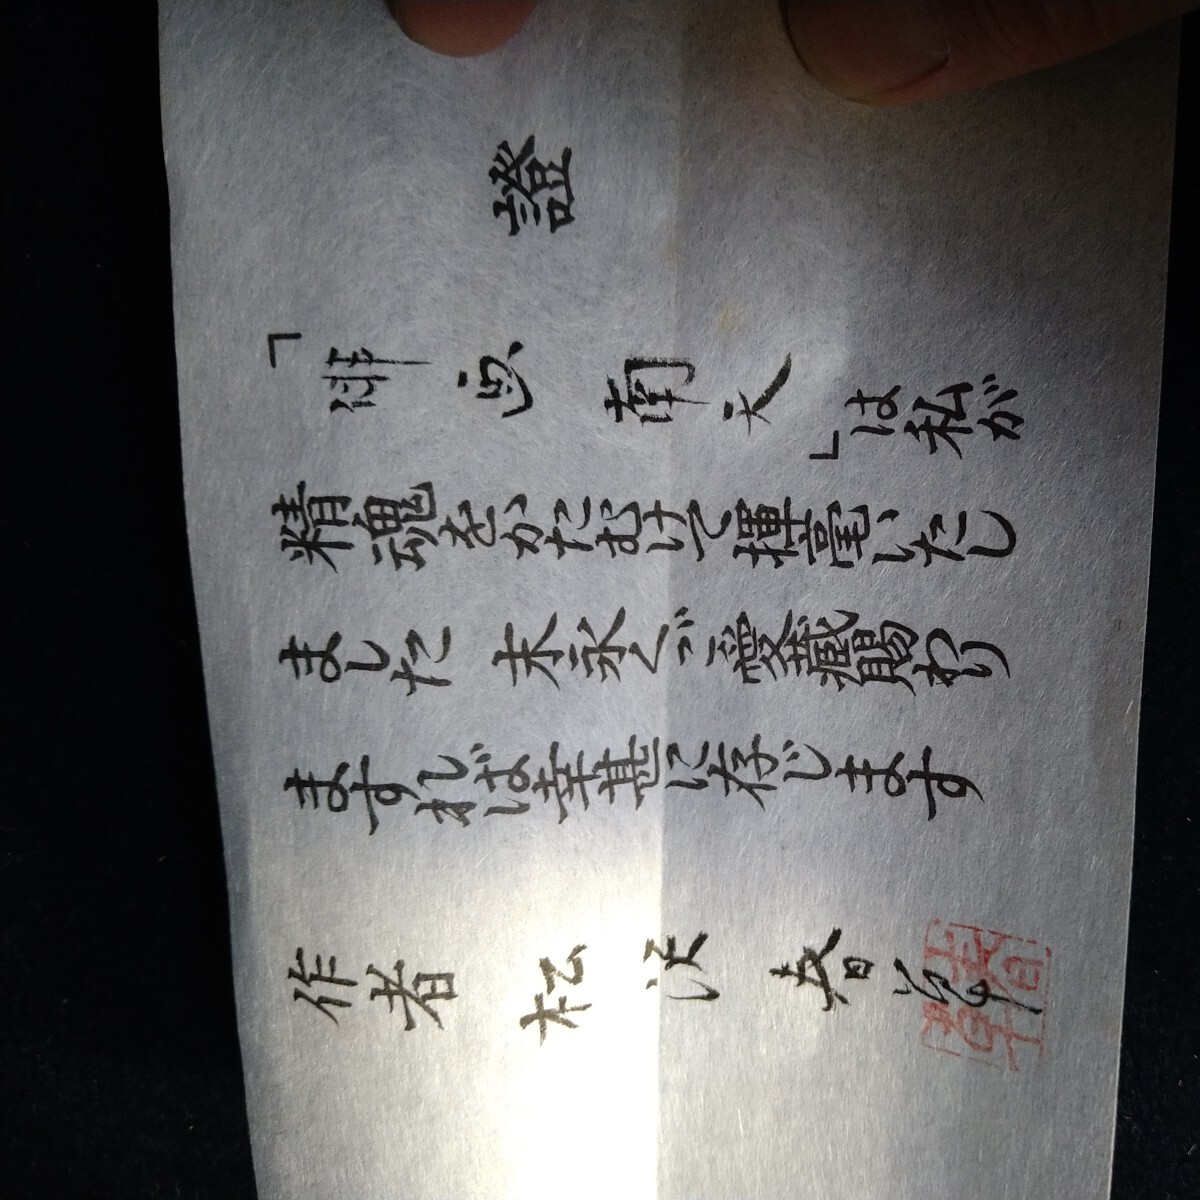 證
「俳 画 南天」は私が
精魂をかたむけて揮毫いたし
ました 末永くご愛蔵賜わり
ますれば幸甚に存じます
作者 松 渓 春